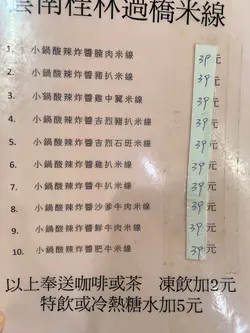 雲南桂林過橋米線
1. 小鍋酸辣炸醬腩肉米線 39元
2. 小鍋酸辣炸醬豬扒米線 39元
3. 小鍋酸辣炸醬雞中翼米線 39元
4. 小鍋酸辣炸醬吉烈豬扒米線 39元
5. 小鍋酸辣炸醬吉烈石班米線 39元
6. 小鍋酸辣炸醬雞扒米線 39元
7. 小鍋酸辣炸醬牛扒米線 39元
8. 小鍋酸辣炸醬沙爹牛肉米線 39元
9. 小鍋酸辣炸醬鮮牛肉米線 39元
10. 小鍋酸辣炸醬肥牛米線 39元
以上奉送咖啡或茶 凍飲加2元
特飲或冷熱糖水加5元